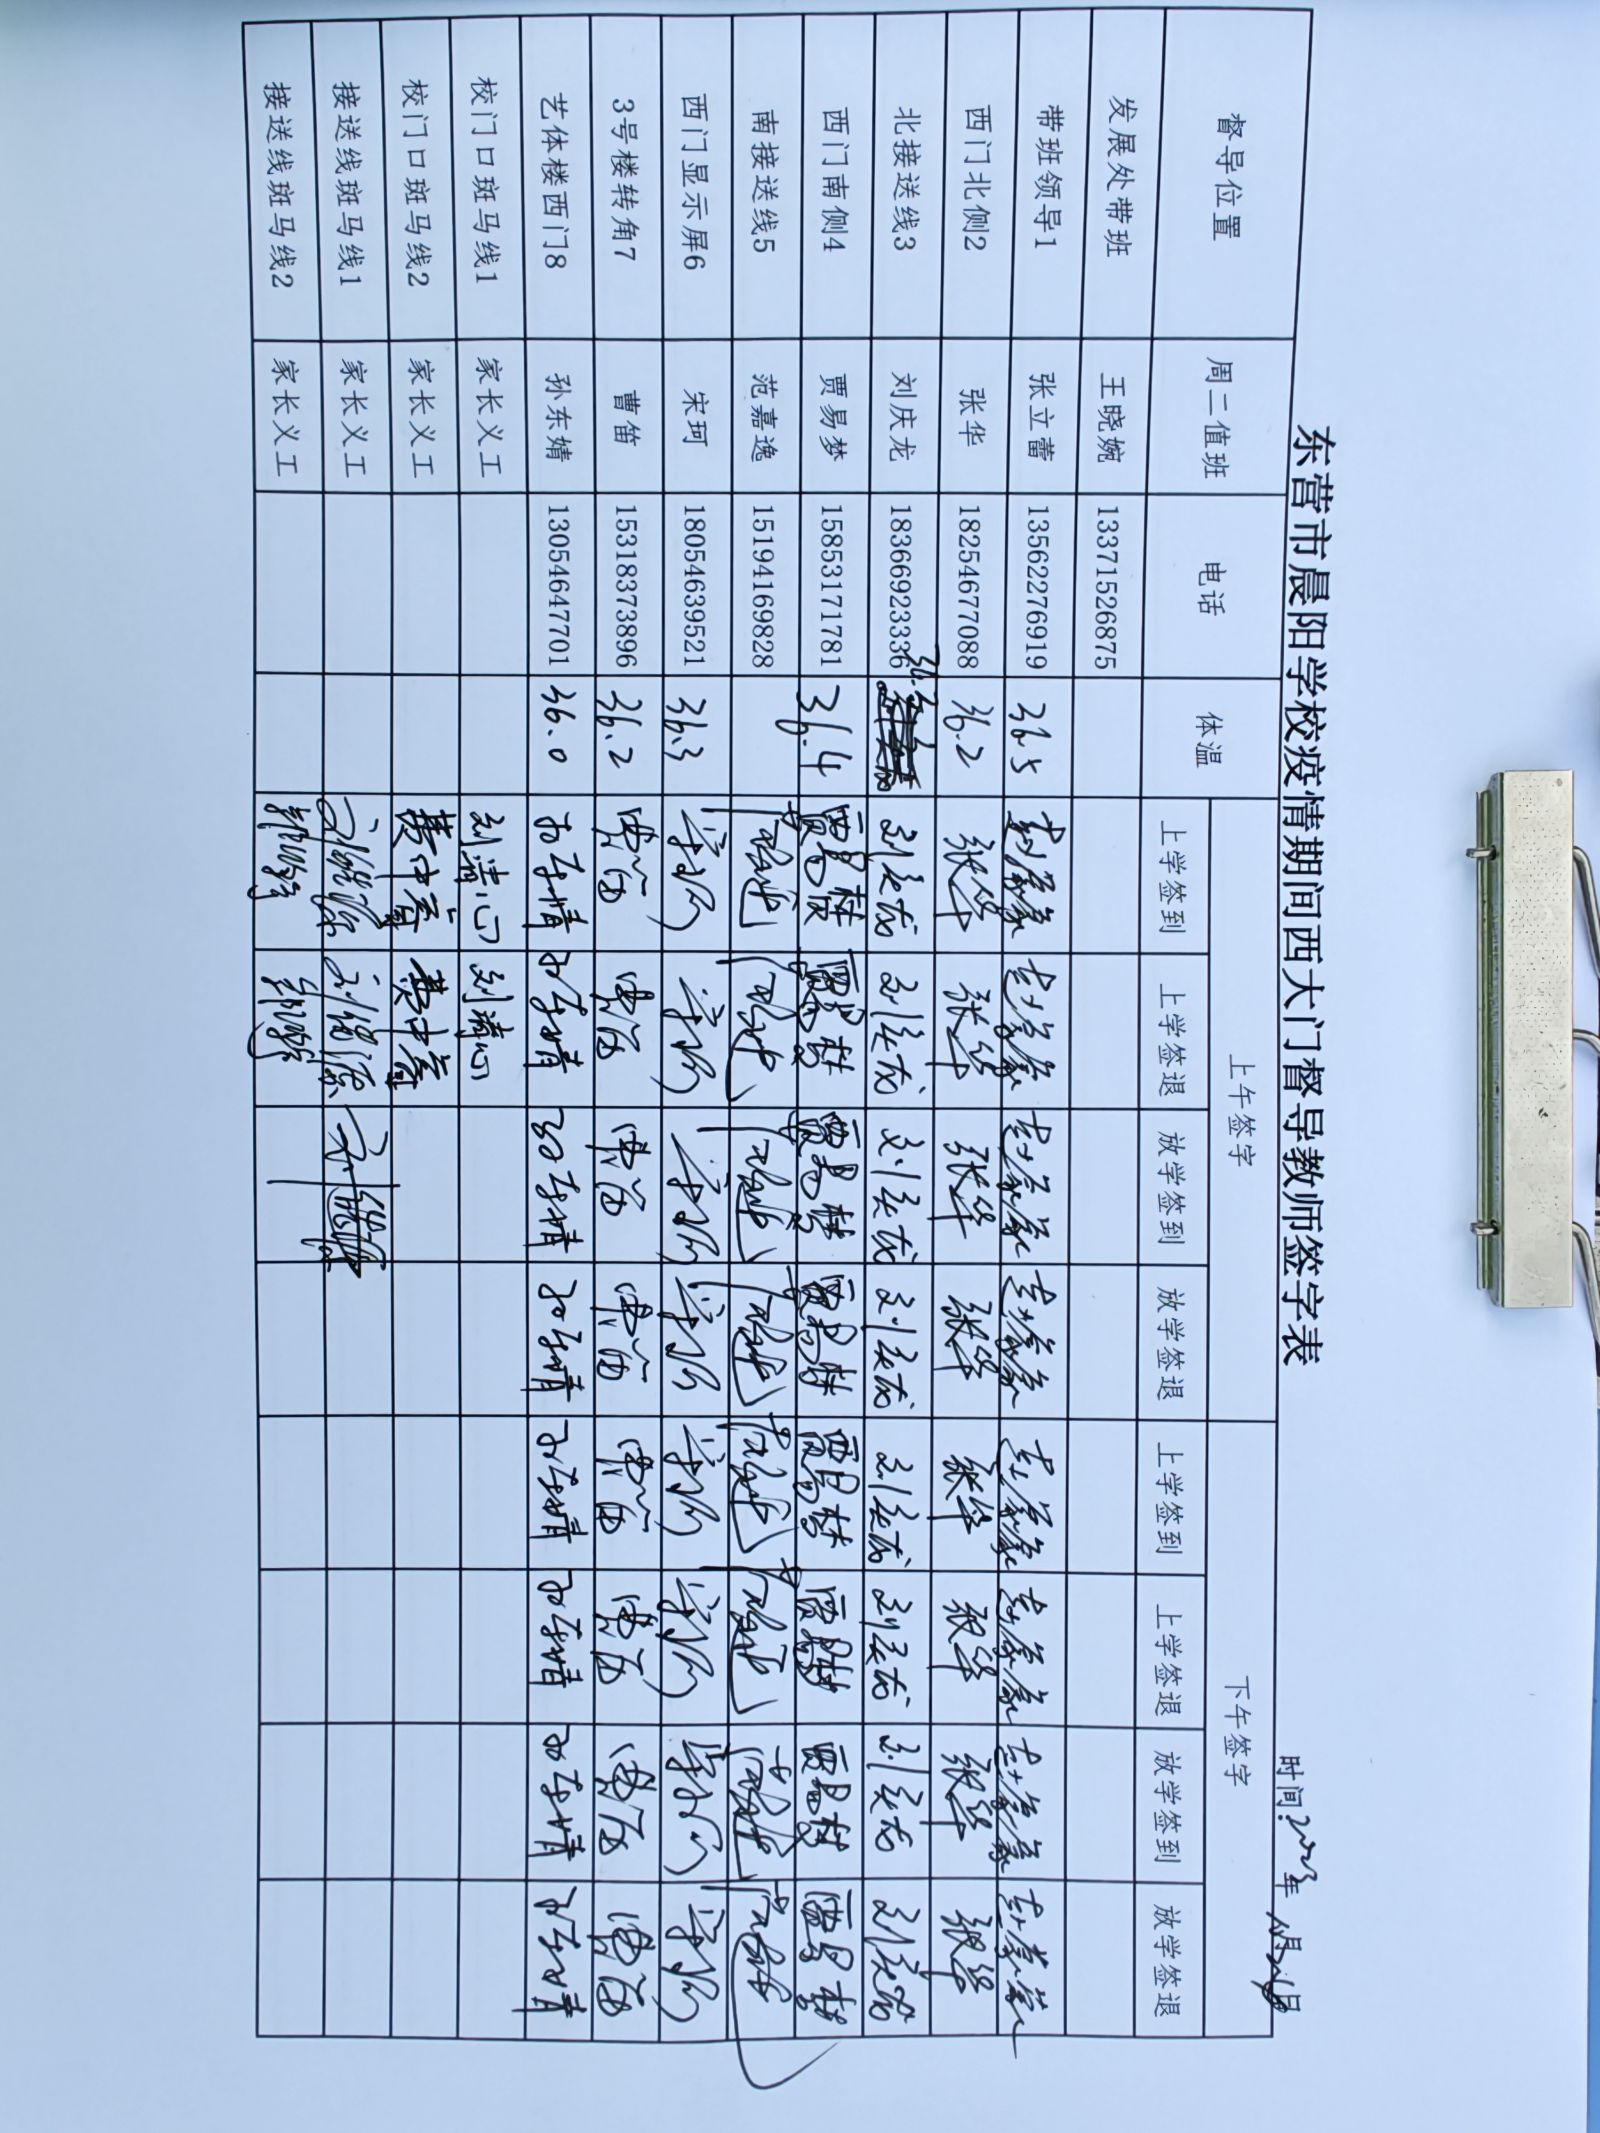 东营市晨阳学校疫情期间西大门督导教师签字表
时间: 年 月 日
督导位置 周二值班 电话 体温 上午签字 下午签字
上学签到 上学签退 放学签到 放学签退 上学签到 上学签退 放学签到 放学签退
发展处带班 王晓婉 13371526875
带班领导1 张立蕾 13562276919 36.5
西门北侧2 张华 18254677088 36.2 张华 张华 张华 张华 张华 张华 张华 张华
北接送线3 刘庆龙 18366923336 刘庆龙 刘庆龙 刘庆龙 刘庆龙 刘庆龙 刘庆龙 刘庆龙 刘庆龙
西门南侧4 贾易梦 15853171781 36.4 贾易梦 贾易梦 贾易梦 贾易梦 贾易梦 贾易梦 贾易梦 贾易梦
南接送线5 范嘉逸 15194169828
西门显示屏6 宋珂 18054639521 36.3 宋珂 宋珂 宋珂 宋珂 宋珂 宋珂 宋珂 宋珂
3号楼转角7 曹笛 15318373896 36.2 曹笛 曹笛 曹笛 曹笛 曹笛 曹笛 曹笛 曹笛
艺体楼西门8 孙东婧 13054647701 36.0 孙东婧 孙东婧 孙东婧 孙东婧 孙东婧 孙东婧 孙东婧 孙东婧
校门口斑马线1 家长义工 刘清心 刘清心
校门口斑马线2 家长义工
接送线斑马线1 家长义工
接送线斑马线2 家长义工